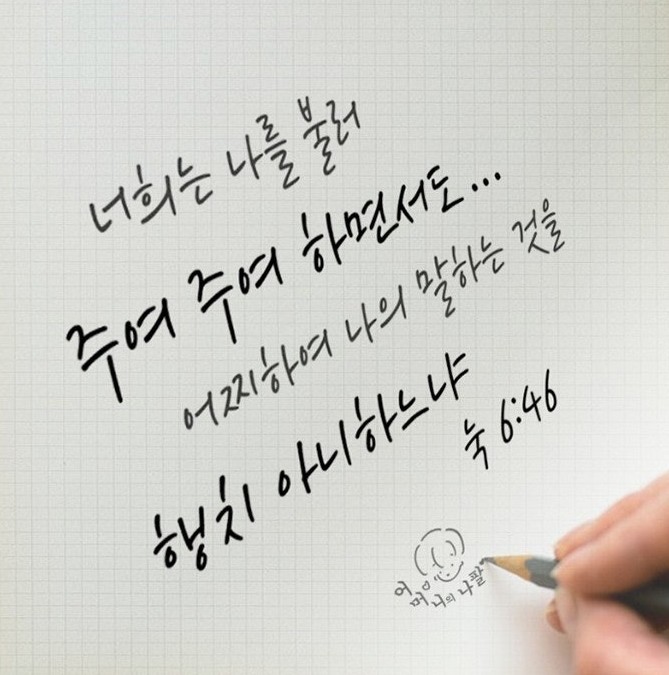 너희는 나를 불러
주여 주여 하면서도...
어찌하여 나의 말하는 것을
행치 아니하느냐
눅 6:46
어머니의 나팔